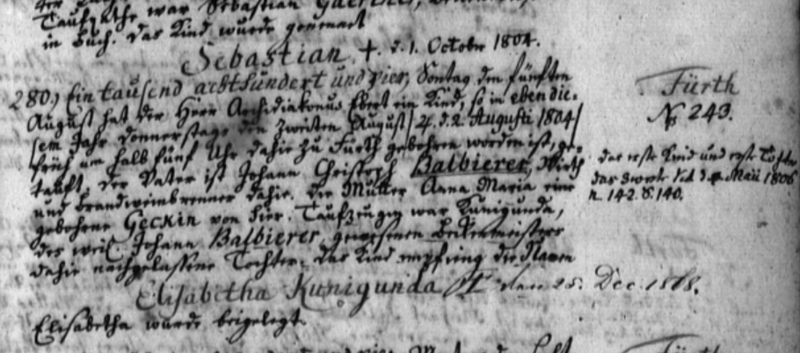 Taufpathe war Sebastian Gaertner,
in Buch. Das Kind wurde genennet
Sebastian. †. d. 1. Octobr 1804.
280.) Ein tausend achthundert und vier, Sontag den fünften
August hat der Herr Archidiakonus Ebert ein Kind, so in eben die-
sem Jahr Donnerstags den zweiten August /: d. 2. Augusti 1804 :/
früh um halb fünf Uhr dahie zu Fürth gebohren worden ist, ge-
tauft. Der Vater ist Johann Christoph Balbierer, Wirth
und Brandweinbrenner dahie. Die Mutter Anna Maria eine
gebohrne Geckin von hier. Taufzeugin war Kunigunda,
des weil. Johann Balbierer, gewesenen Beckenmeisters
dahie nachgelassene Tochter. Das Kind empfieng die Namen
Elisabetha Kunigunda † den 25. Dec. 1818.
Elisabetha wurde beigelegt.
Fürth
№ 243.
das erste Kind und erste Tochter
das zweite s. d. Maii 1806
n. 142. S. 140.
Fürth